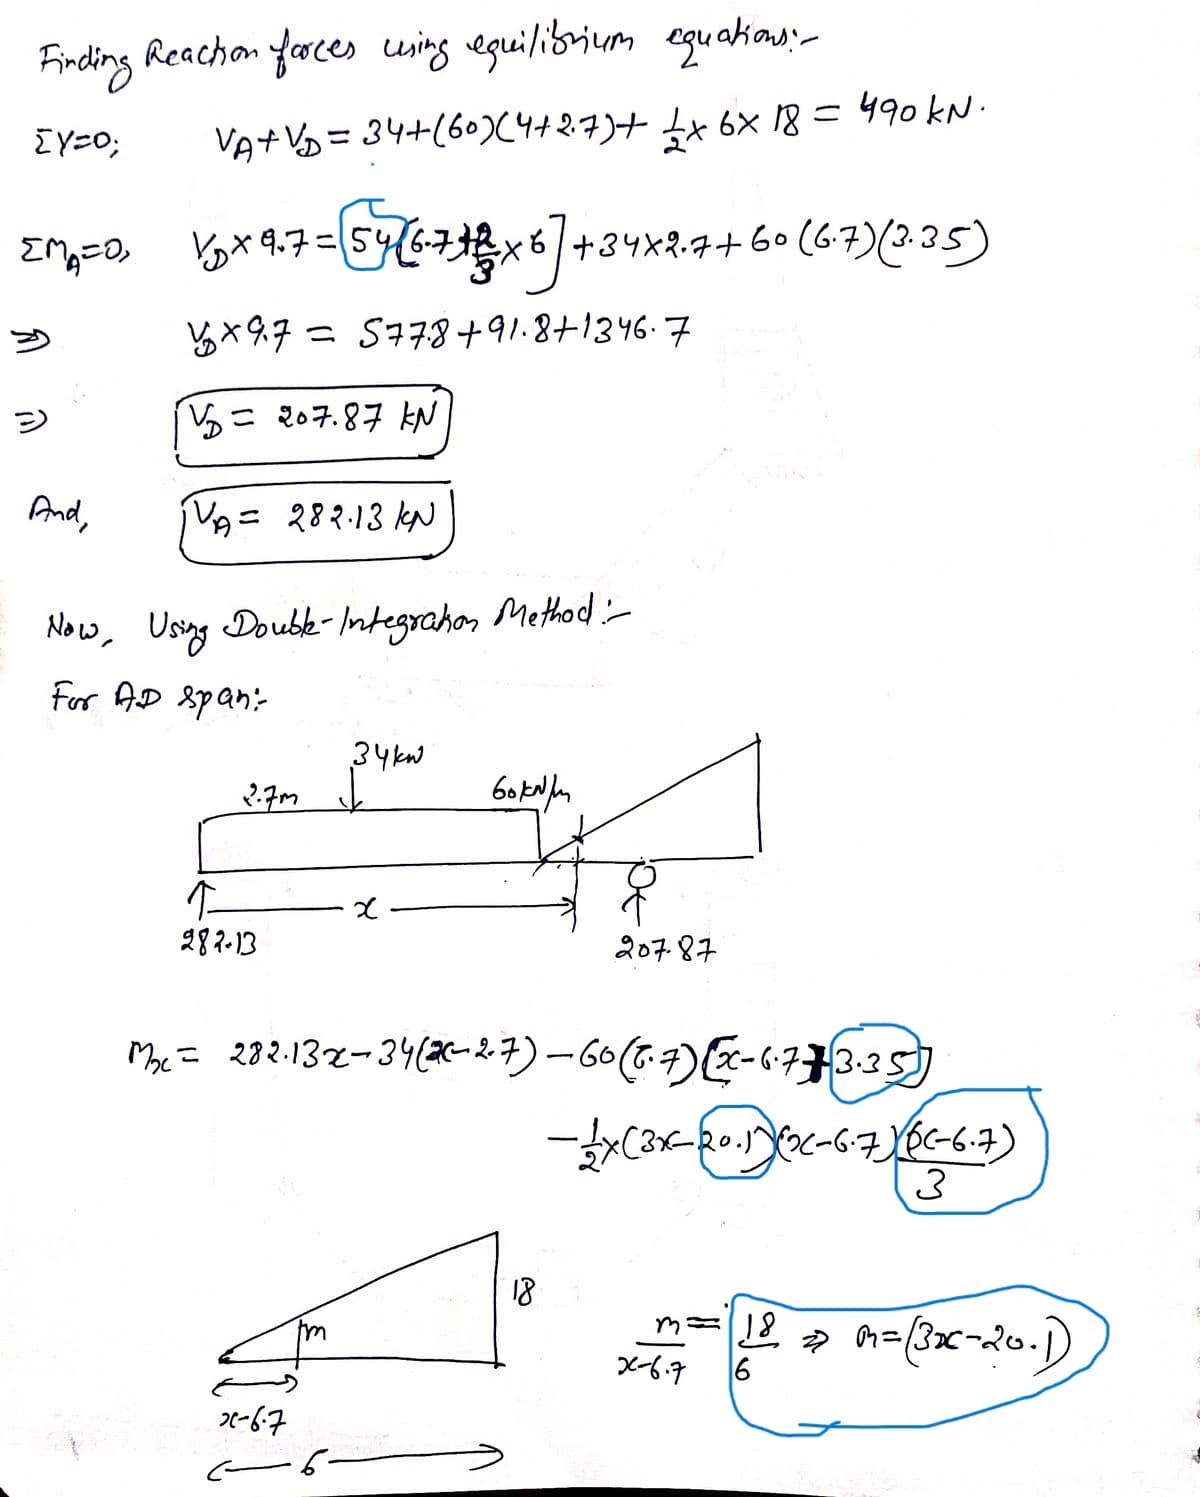 Finding Reaction forces using equilibrium equations:-
ΣY=0; VA+VD = 34+(60)(4+2.7)+ 1/2 x 6x 18 = 490 kN.
ΣMA=0, VD x 9.7 = 54[6.7+2/3 x 6] + 34x2.7+60 (6.7)(3.35)
⇒ VD x 9.7 = 577.8+91.8+1346.7
⇒ VD = 207.87 kN
And, VA = 282.13 kN
Now, Using Double-Integration Method:-
For AD span:-
34kN
2.7m 60kN/m
x
282.13 207.87
Mx = 282.13x-34(x-2.7)-60(6.7)[x-6.7+3.35]
-1/2 x(3x-20.1)(x-6.7)(x-6.7)/3
18
m m/(x-6.7) = 18/6 ⇒ m=(3x-20.1)
x-6.7
6